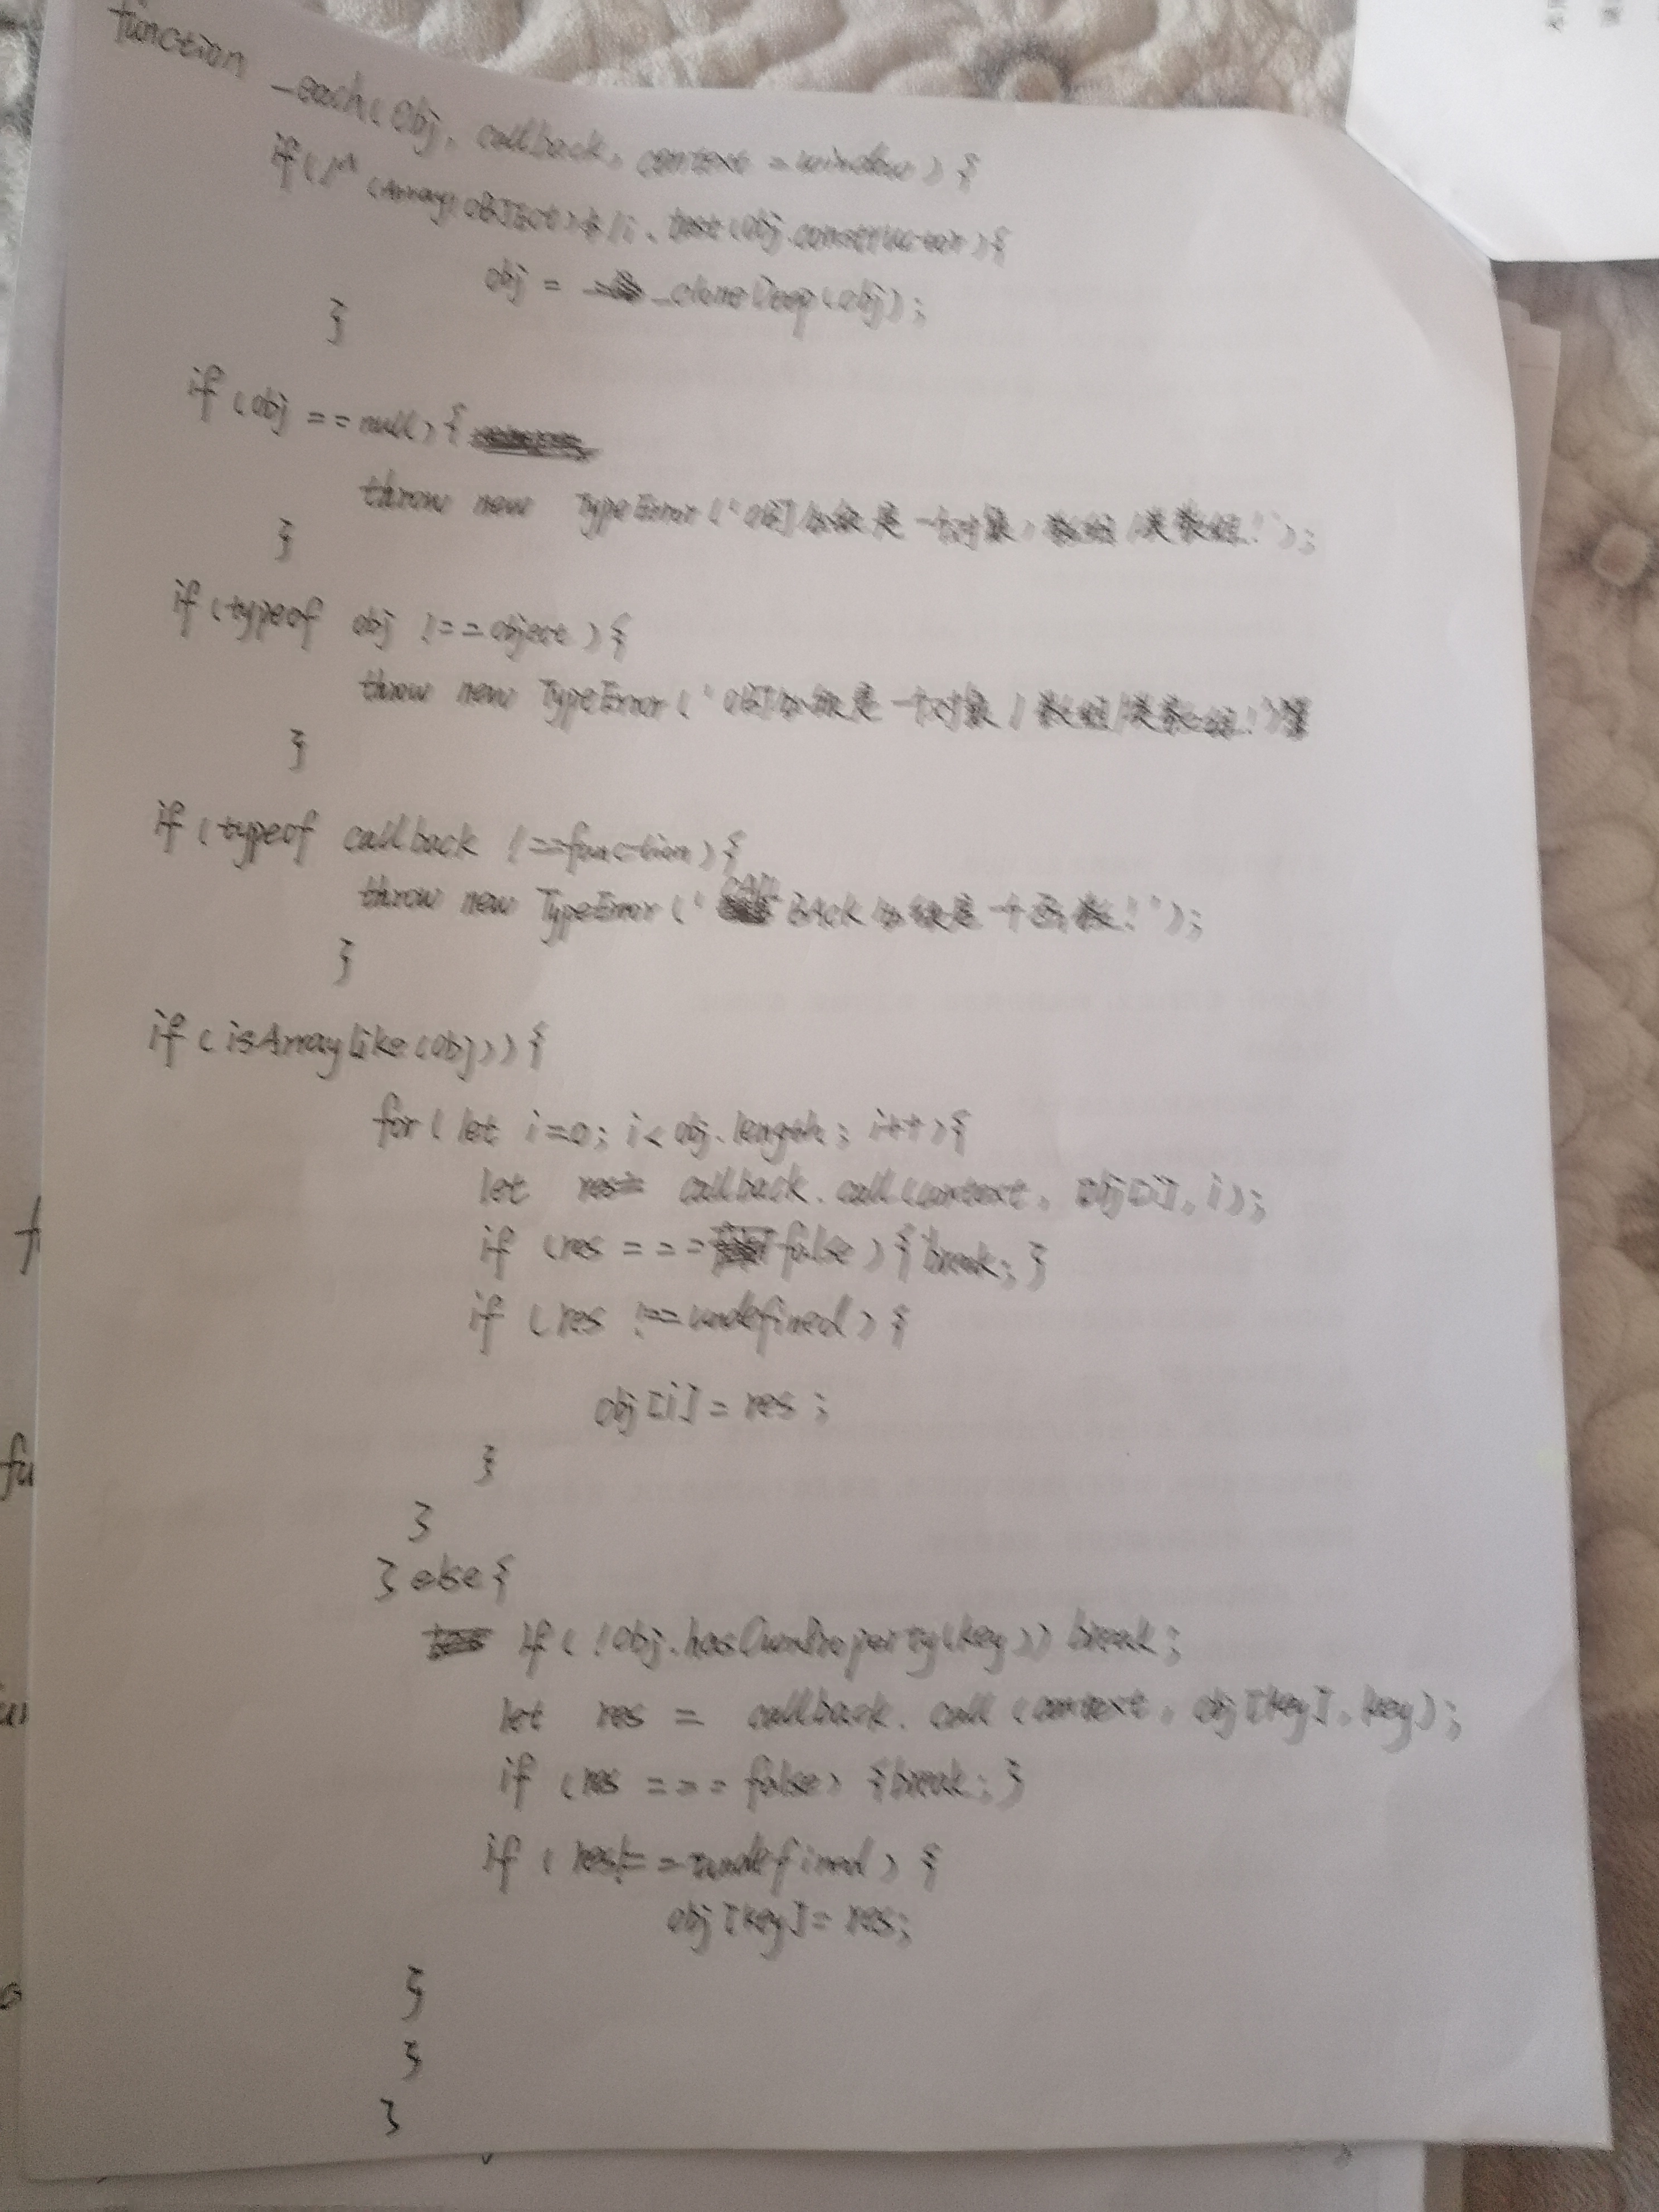 function _each(obj, callback, context = window) {
if(/^(Array|OBJECT)$/i.test(obj.constructor){
obj = _cloneDeep(obj);
}
if(obj == null){
throw new TypeError('OBJ必须是一个对象/数组/类数组!');
}
if(typeof obj !==object){
throw new TypeError('OBJ必须是一个对象/数组/类数组!')
}
if(typeof callback !==function){
throw new TypeError('CALLBACK必须是一个函数!');
}
if(isArrayLike(obj)){
for(let i=0; i<obj.length; i++){
let res= callback.call(context, obj[i], i);
if (res === false) {break;}
if (res !==undefined) {
obj[i]= res;
}
}
}else{
if(!obj.hasOwnProperty(key)) break;
let res = callback.call(context, obj[key], key);
if (res === false) {break;}
if (res!==undefined) {
obj[key]= res;
}
}
}